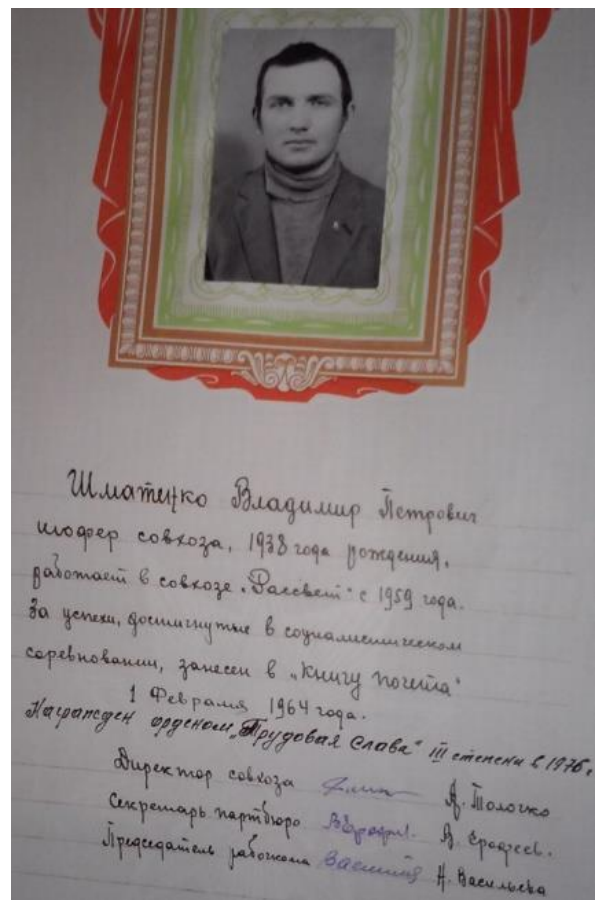 Шматенко Владимир Петрович
шофер совхоза, 1938 года рождения,
работает в совхозе „Рассвет" с 1959 года.
За успехи, достигнутые в социалистическом
соревновании, занесен в „Книгу почета"
1 Февраля 1964 года.
Награжден орденом „Трудовая Слава" III степени в 1976 г.
Директор совхоза А. Толочко
Секретарь партбюро В. Ерофеев.
Председатель рабочкома Н. Васильева